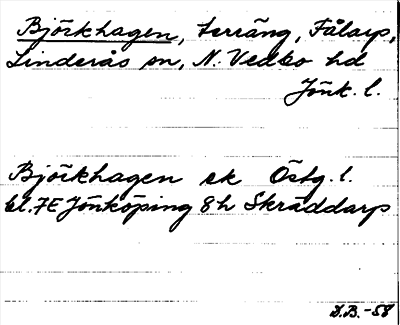 Björkhagen, terräng, Fålarp,
Linderås sn, N. Vedbo hd
Jönk. l.
Björkhagen ek Östg. l.
bl. 7E Jönköping 8h Skräddarp
D.B. -58